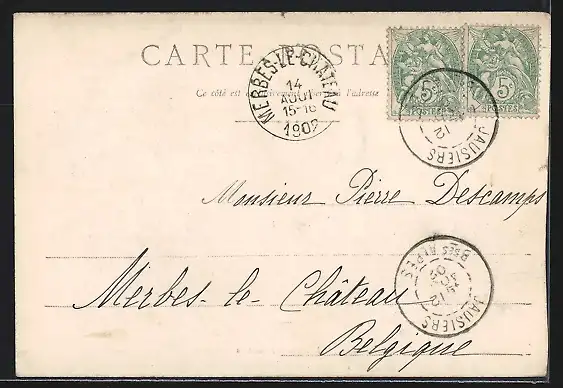 CARTE POSTA
MERBES-LE-CHATEAU
14
AOUT
15-16
1902
Ce côté est exclusivement réservé à l'adresse
5c
5c
POSTES
POSTES
JAUSIERS
12
Monsieur Pierre Descamps
Merbes-le-Château
Belgique
JAUSIERS
BSES ALPES
12
02